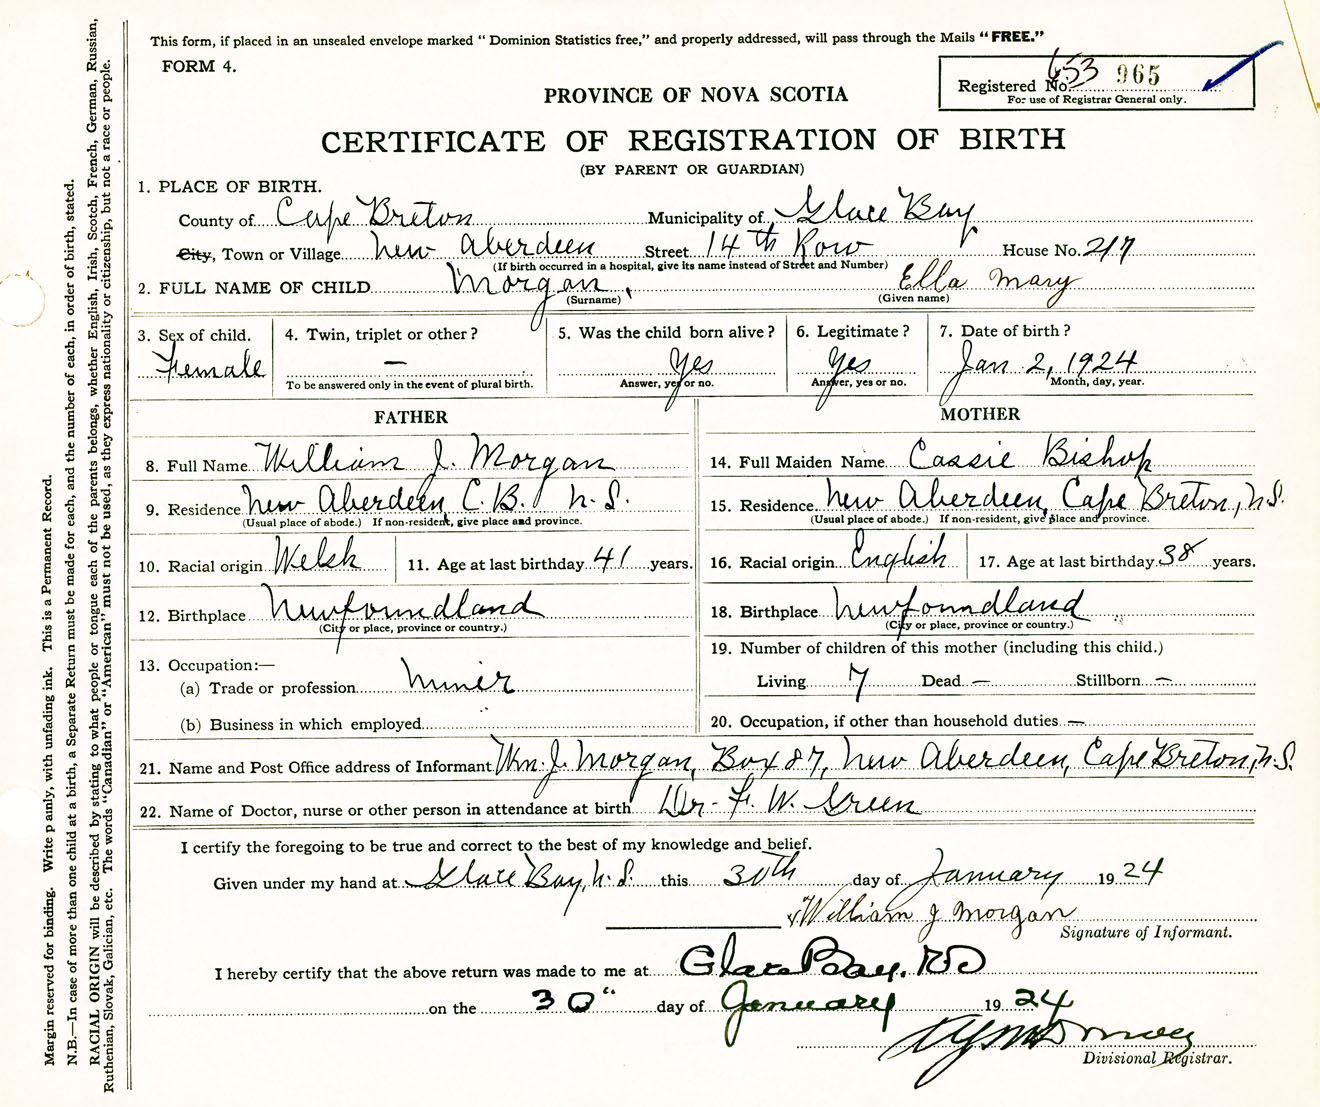 This form, if placed in an unsealed envelope marked "Dominion Statistics free," and properly addressed, will pass through the Mails "FREE."
FORM 4.
Registered No. 653 965
For use of Registrar General only.
PROVINCE OF NOVA SCOTIA
CERTIFICATE OF REGISTRATION OF BIRTH
(BY PARENT OR GUARDIAN)
1. PLACE OF BIRTH.
County of Cape Breton Municipality of Glace Bay
City, Town or Village New Aberdeen Street 14th Row House No. 217
(If birth occurred in a hospital, give its name instead of Street and Number)
2. FULL NAME OF CHILD Morgan, Ella Mary
(Surname) (Given name)
3. Sex of child. 4. Twin, triplet or other? 5. Was the child born alive? 6. Legitimate? 7. Date of birth?
Female — Yes Yes Jan 2, 1924
To be answered only in the event of plural birth. Answer, yes or no. Answer, yes or no. Month, day, year.
FATHER
8. Full Name William J. Morgan
9. Residence New Aberdeen, C.B. N.S.
(Usual place of abode.) If non-resident, give place and province.
10. Racial origin Welsh 11. Age at last birthday 41 years.
12. Birthplace Newfoundland
(City or place, province or country.)
13. Occupation:—
(a) Trade or profession Miner
(b) Business in which employed
MOTHER
14. Full Maiden Name Cassie Bishop
15. Residence New Aberdeen, Cape Breton, N.S.
(Usual place of abode.) If non-resident, give place and province.
16. Racial origin English 17. Age at last birthday 38 years.
18. Birthplace Newfoundland
(City or place, province or country.)
19. Number of children of this mother (including this child.)
Living 7 Dead — Stillborn —
20. Occupation, if other than household duties —
21. Name and Post Office address of Informant Wm. J. Morgan, Box 87, New Aberdeen, Cape Breton, N.S.
22. Name of Doctor, nurse or other person in attendance at birth Dr. F. W. Green
I certify the foregoing to be true and correct to the best of my knowledge and belief.
Given under my hand at Glace Bay, N.S. this 30th day of January 1924
William J Morgan
Signature of Informant.
I hereby certify that the above return was made to me at Glace Bay. NS
on the 30" day of January 1924
Divisional Registrar.
Margin reserved for binding. Write plainly, with unfading ink. This is a Permanent Record.
N.B.—In case of more than one child at a birth, a Separate Return must be made for each, and the number of each, in order of birth, stated.
RACIAL ORIGIN will be described by stating to what people or tongue each of the parents belongs, whether English, Irish, Scotch, French, German, Russian,
Ruthenian, Slovak, Galician, etc. The words "Canadian" or "American" must not be used, as they express nationality or citizenship, but not a race or people.